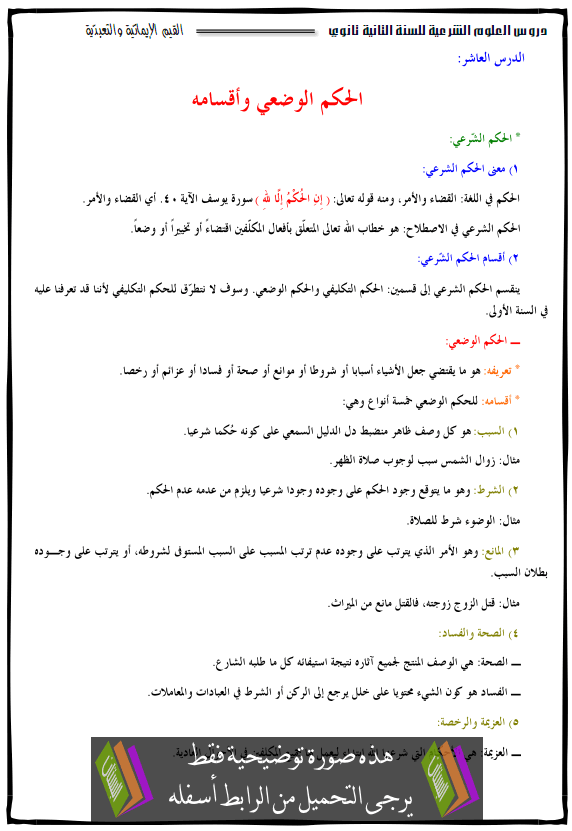 دروس العلوم الشرعية للسنة الثانية ثانوي القيم الإيمانية والتعبدية
الدرس العاشر:
الحكم الوضعي وأقسامه
* الحكم الشّرعي:
١) معنى الحكم الشرعي:
الحكم في اللغة: القضاء والأمر، ومنه قوله تعالى: ﴿ إِنِ الْحُكْمُ إِلَّا لِلَّهِ ﴾ سورة يوسف الآية ٤٠. أي القضاء والأمر.
الحكم الشرعي في الاصطلاح: هو خطاب الله تعالى المتعلّق بأفعال المكلّفين اقتضاءً أو تخييراً أو وضعاً.
٢) أقسام الحكم الشّرعي:
ينقسم الحكم الشرعي إلى قسمين: الحكم التكليفي والحكم الوضعي. وسوف لا نتطرّق للحكم التكليفي لأننا قد تعرفنا عليه
في السنة الأولى.
ـــ الحكم الوضعي:
* تعريفه: هو ما يقتضي جعل الأشياء أسبابا أو شروطا أو موانع أو صحة أو فسادا أو عزائم أو رخصا.
* أقسامه: للحكم الوضعي خمسة أنواع وهي:
١) السبب: هو كل وصف ظاهر منضبط دل الدليل السمعي على كونه حُكما شرعيا.
مثال: زوال الشمس سبب لوجوب صلاة الظهر.
٢) الشرط: وهو ما يتوقع وجود الحكم على وجوده وجودا شرعيا ويلزم من عدمه عدم الحكم.
مثال: الوضوء شرط للصلاة.
٣) المانع: وهو الأمر الذي يترتب على وجوده عدم ترتب المسبب على السبب المستوفى لشروطه، أو يترتب على وجـــوده
بطلان السبب.
مثال: قتل الزوج زوجته، فالقتل مانع من الميراث.
٤) الصحة والفساد:
ـــ الصحة: هي الوصف المنتج لجميع آثاره نتيجة استيفائه كل ما طلبه الشارع.
ـــ الفساد هو كون الشيء محتويا على خلل يرجع إلى الركن أو الشرط في العبادات والمعاملات.
٥) العزيمة والرخصة:
ـــ العزيمة: هي
هذه صورة توضيحية فقط
يرجى التحميل من الرابط أسفله